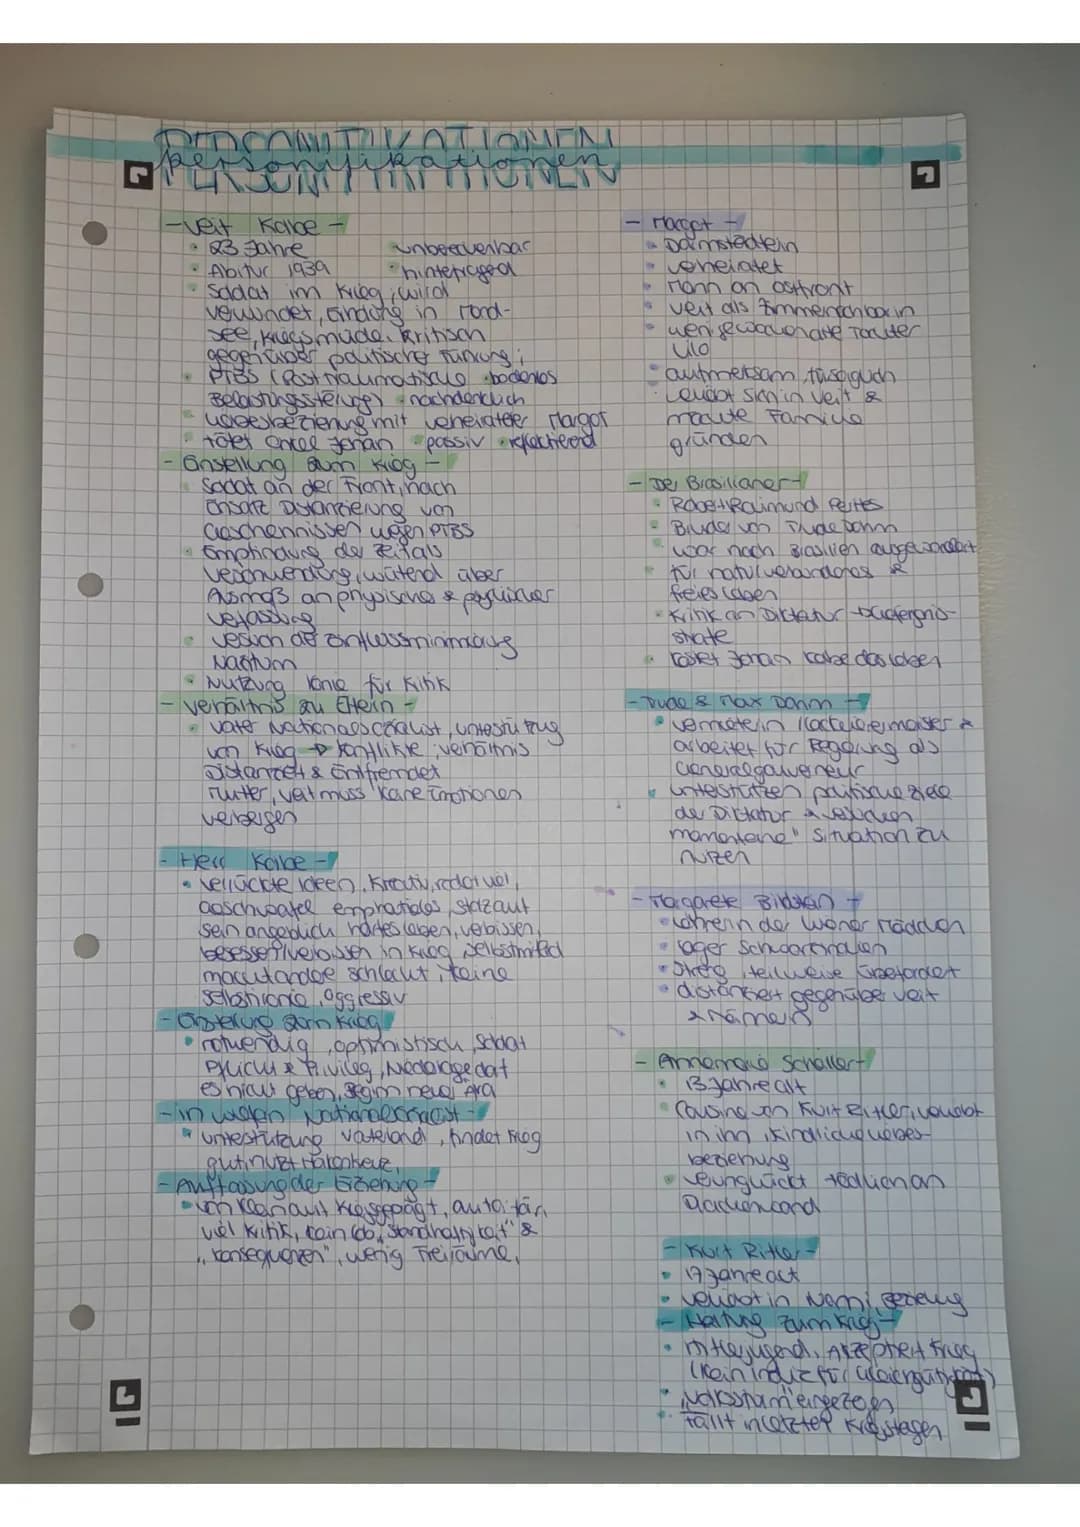 personifikationen
- Veit Kolbe -
• 23 Jahre
• Abitur 1939
• Soldat im Krieg, wird
verwundet,
see, kriegsmüde, kritisch
gegenüber politischer Führung;
• PTBS (Posttraumatische • bodenlos
Belastungsstörung) • nachdenklich
• Liebesbeziehung mit verheirateter Margot
• tötet Onkel Johan • passiv • reflectierend
• hinterfragend
- Einstellung zum Krieg -
• Soldat an der Front, nach
Einsatz Distanzierung von
Geschehnissen wegen PTBS
• Empfindung der Zeit als
Verschwendung, wütend über
Ausmaß an physischer & psychischer
Verfassung
• Versuch der Einflussminimierung
• Nutzung Ironie für Kritik
- Verhältnis zu Eltern -
• Vater Nationalsozialist, Unterstützung
von Krieg → Konflikte; Verhältnis
Distanziert & Entfremdet
Mutter, Veit muss keine Emotionen
verbergen
- Herr Kolbe -
• verrückte Ideen, kreativ, redet viel,
sein angeblich hartes Leben, verbissen,
besessen/verbissen in Krieg, Selbstmitleid
Selbstironie, aggressiv
- Einstellung zum Krieg
• notwendig, optimistisch, Soldat
Pflicht & Privileg, Niederlage darf
es nicht geben, Beginn neuer Ära
- in wiefern Nationalsozialist -
• Unterstützung Vaterland, findet Krieg
gut, nutzt Hakenkreuz,
- Auffassung der Erziehung -
• von klein auf Kriegsgeprägt, autoritär,
viel Kritik, kein Lob, "Standhaftigkeit" &
"Konsequenzen", wenig Freiräume,
- Margot -
• Darmstädterin
• verheiratet
• Mann an Ostfront
• Veit als Zimmernachbarin
• wenige wochen alte Tochter
Lilo
• aufmerksam, fürsorglich
• verliebt sich in Veit &
möchte Familie
gründen
- Der Brasilianer -
• Robert Raimund Perttes
• Bruder von Trude Dohm
• war nach Brasilien ausgewandert
• für naturverbundenes &
freies Leben
• Kritik an Diktatur → Gefängnis-
strafe
• rettet Johan Kolbe das Leben
- Trude & Max Dohm -
• Vermieterin, Lackierermeister &
arbeitet für Regierung als
• unterstützen politische Ziele
der Diktatur & versuchen
momentane" Situation zu
nutzen
- Margarete Bildstein -
• Lehrerin der Wiener Mädchen
• Lager Schwarzindien
• streng, teilweise überfordert
• distanziert gegenüber Veit
- Annemarie Schaller -
• 13 Jahre alt
• Cousine von Kurt Ritler, verliebt
in ihn, kindliche Liebes-
beziehung
• verunglückt tödlich an
Drachenwand
- Kurt Ritler -
• 17 Jahre alt
• verliebt in Nanni, Beziehung
- Haltung zum Krieg -
• Hitlerjugend, Akzeptiert Krieg
(kein Indiz für Gleichgültigkeit)
• "Volkssturm" eingezogen
• fällt in letzten Kriegstagen